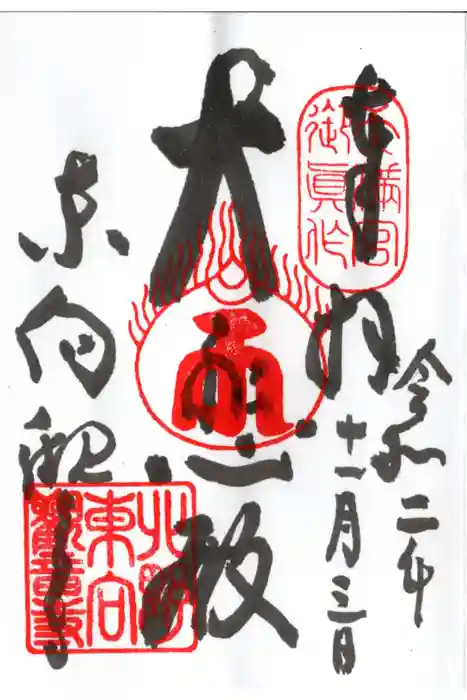 奉拝
天満宮
御眞作
令和二年
十一月三日
大悲殿
東向観音寺
北野
東向
觀音寺